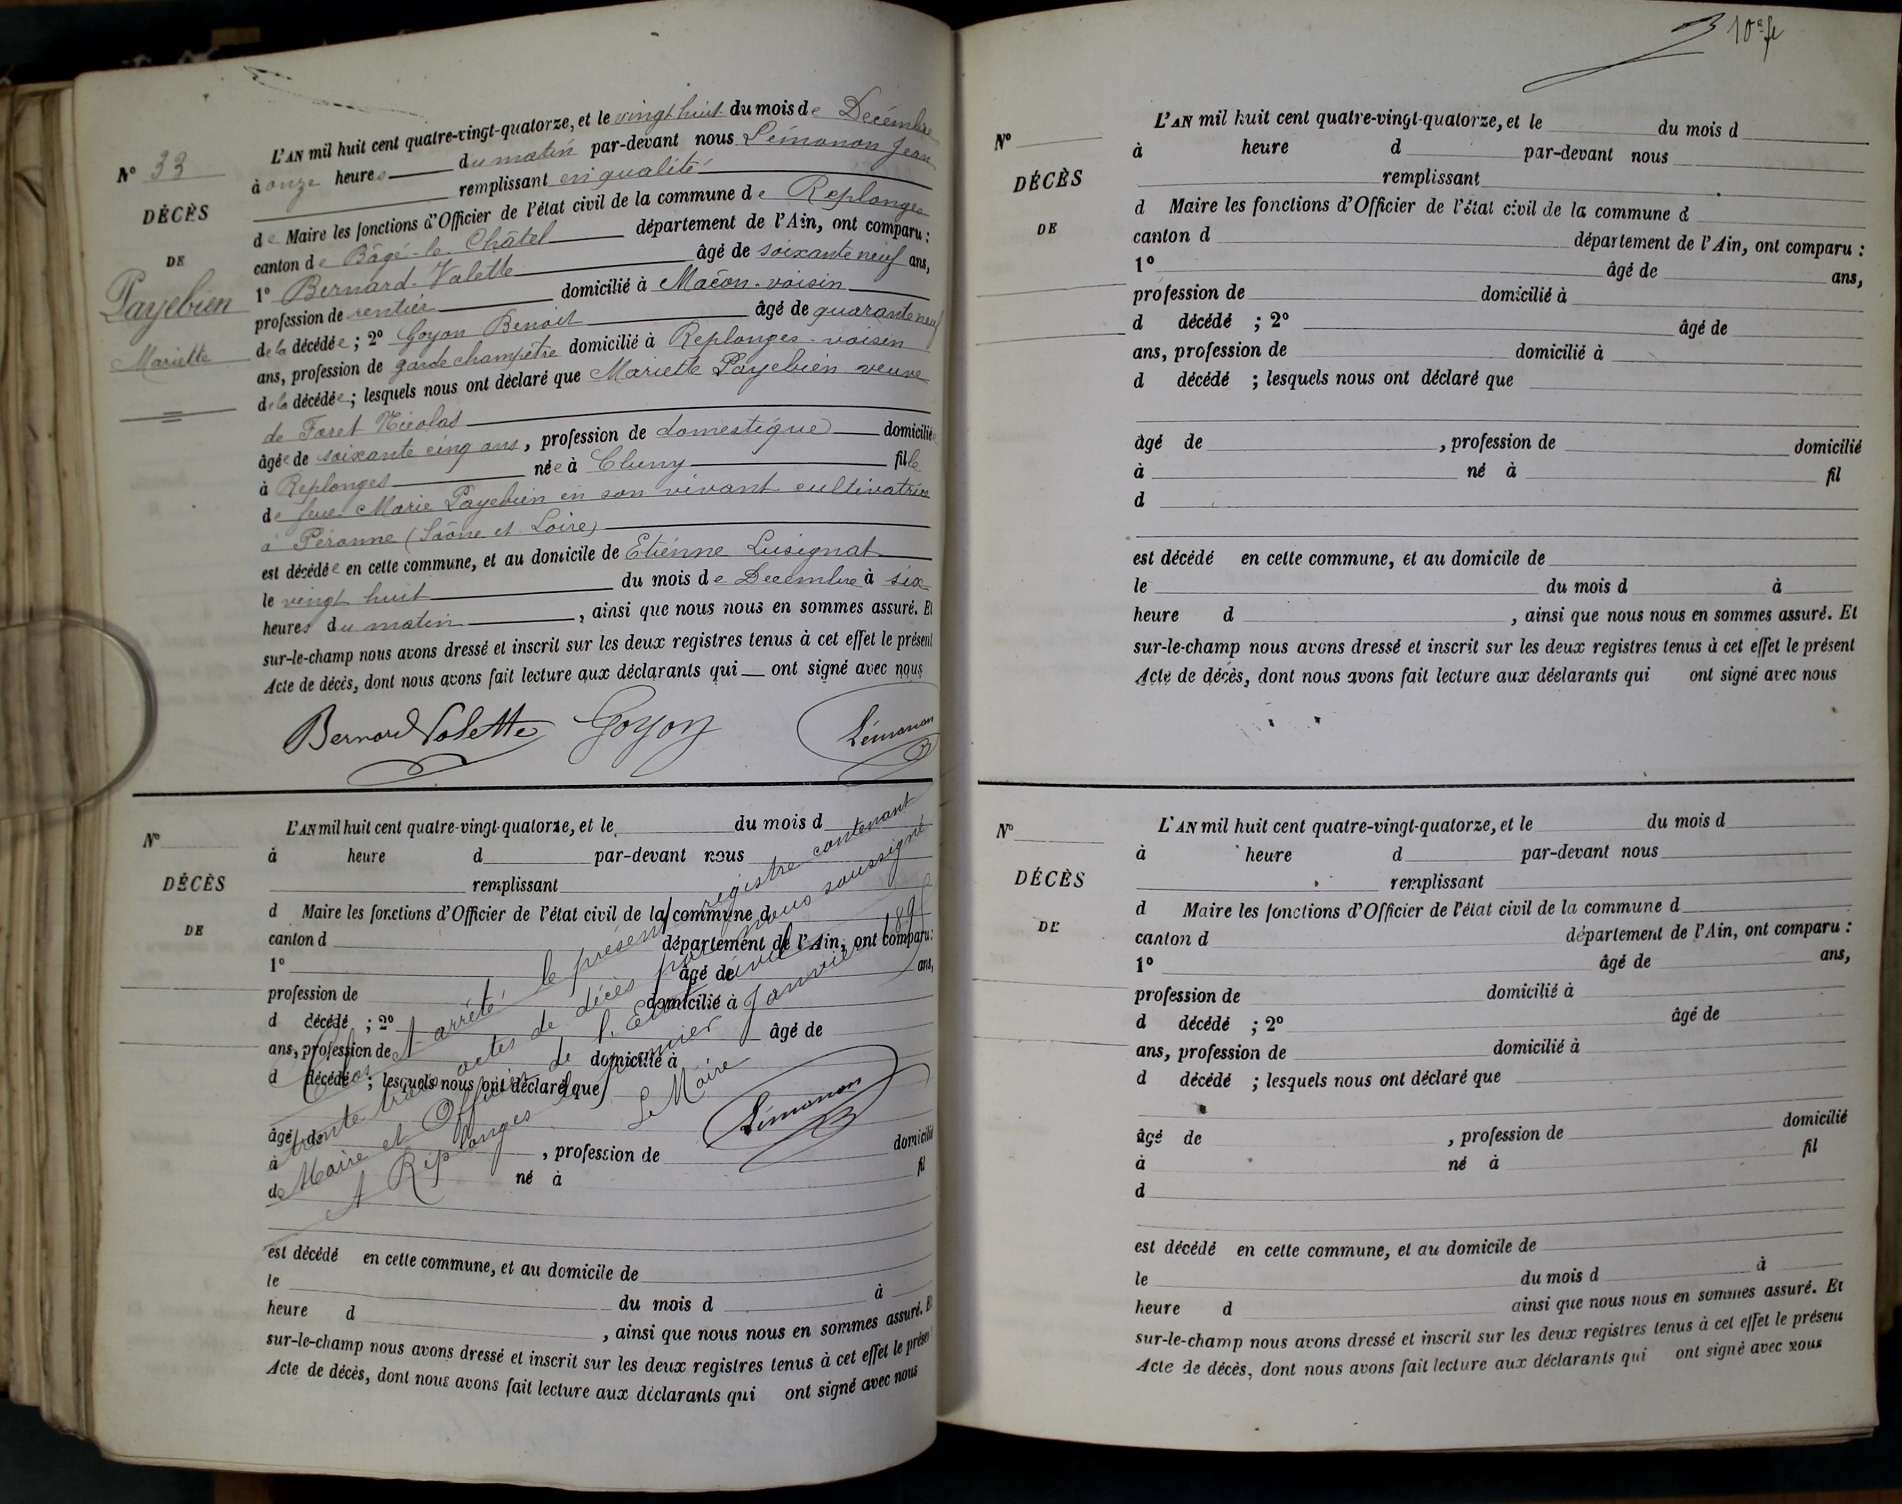 L'AN mil huit cent quatre-vingt-quatorze, et le vingt huit du mois de Décembre
à onze heures du matin par-devant nous Lémonon Jean
remplissant en qualité
de Maire les fonctions d'Officier de l'état civil de la commune de Replonges
canton de Bâgé-le-Châtel département de l'Ain, ont comparu :
1° Bernard-Valette âgé de soixante neuf ans,
profession de rentier domicilié à Macon - voisin
de la décédée ; 2° Goyon Benoit âgé de quarante neuf
ans, profession de garde champêtre domicilié à Replonges - voisin
de la décédée ; lesquels nous ont déclaré que Mariette Payebien veuve
de Foret Nicolas
âgée de soixante cinq ans, profession de domestique domiciliée
à Replonges née à Cluny fille
de feue Marie Payebien en son vivant cultivatrice
à Péronne (Saône et Loire)
est décédée en cette commune, et au domicile de Etienne Lusignat
le vingt huit du mois de Decembre à six
heures du matin, ainsi que nous nous en sommes assuré. Et
sur-le-champ nous avons dressé et inscrit sur les deux registres tenus à cet effet le présent
Acte de décès, dont nous avons fait lecture aux déclarants qui — ont signé avec nous
Bernard Valette Goyon Lémonon
N° 33
DÉCÈS
DE
Payebien
Mariette
N°
DÉCÈS
DE
L'AN mil huit cent quatre-vingt-quatorze, et le du mois d
à heure d par-devant nous
remplissant
d Maire les fonctions d'Officier de l'état civil de la commune d
canton d département de l'Ain, ont comparu :
1° âgé de ans,
profession de domicilié à
d décédé ; 2° âgé de
ans, profession de domicilié à
d décédé ; lesquels nous ont déclaré que
âgé de
à , profession de domicilié
d né à fil
est décédé en cette commune, et au domicile de
le du mois d à
heure d , ainsi que nous nous en sommes assuré. Et
sur-le-champ nous avons dressé et inscrit sur les deux registres tenus à cet effet le présent
Acte de décès, dont nous avons fait lecture aux déclarants qui ont signé avec nous
Clos et arrêté le présent registre contenant
trente trois actes de décès par nous soussigné
Maire et Officier de l'Etat civil
A Replonges le premier Janvier 189
Le Maire
Lémonon
10e f
N°
DÉCÈS
DE
L'AN mil huit cent quatre-vingt-quatorze, et le du mois d
à heure d par-devant nous
remplissant
d Maire les fonctions d'Officier de l'état civil de la commune d
canton d département de l'Ain, ont comparu :
1° âgé de ans,
profession de domicilié à
d décédé ; 2° âgé de
ans, profession de domicilié à
d décédé ; lesquels nous ont déclaré que
âgé de , profession de domicilié
à né à fil
d
est décédé en cette commune, et au domicile de
le du mois d à
heure d , ainsi que nous nous en sommes assuré. Et
sur-le-champ nous avons dressé et inscrit sur les deux registres tenus à cet effet le présent
Acte de décès, dont nous avons fait lecture aux déclarants qui ont signé avec nous
N°
DÉCÈS
DE
L'AN mil huit cent quatre-vingt-quatorze, et le du mois d
à heure d par-devant nous
remplissant
d Maire les fonctions d'Officier de l'état civil de la commune d
canton d département de l'Ain, ont comparu :
1° âgé de ans,
profession de domicilié à
d décédé ; 2° âgé de
ans, profession de domicilié à
d décédé ; lesquels nous ont déclaré que
âgé de , profession de domicilié
à né à fil
d
est décédé en cette commune, et au domicile de
le du mois d à
heure d ainsi que nous nous en sommes assuré. Et
sur-le-champ nous avons dressé et inscrit sur les deux registres tenus à cet effet le présent
Acte de décès, dont nous avons fait lecture aux déclarants qui ont signé avec nous